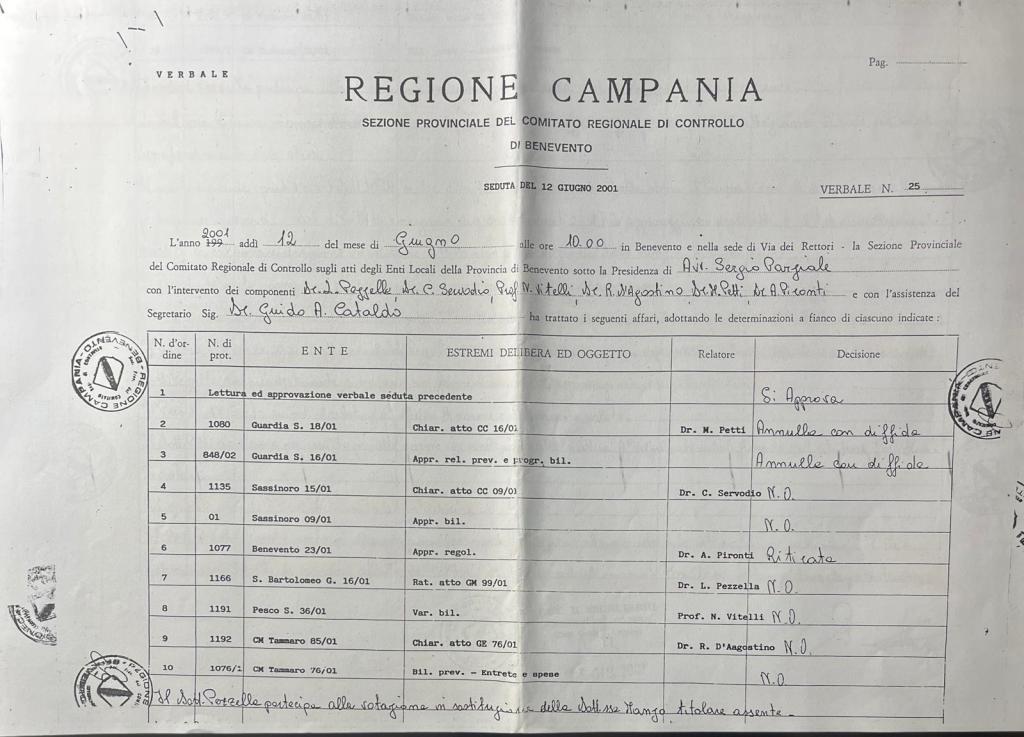 Pag.
VERBALE
REGIONE CAMPANIA
SEZIONE PROVINCIALE DEL COMITATO REGIONALE DI CONTROLLO
DI BENEVENTO
SEDUTA DEL 12 GIUGNO 2001
VERBALE N. 25
2001
L'anno 199 addì 12 del mese di Giugno alle ore 10.00 in Benevento e nella sede di Via dei Rettori - la Sezione Provinciale
del Comitato Regionale di Controllo sugli atti degli Enti Locali della Provincia di Benevento sotto la Presidenza di Avv. Sergio
con l'intervento dei componenti Dr. L. Pezzella, Dr. C. Servodio, Prof. N. Vitelli, Dr. R. D'Agostino Dr. M. Petti Dr. A. Pironti e con l'assistenza del
Segretario Sig. Dr. Guido A. Cataldo ha trattato i seguenti affari, adottando le determinazioni a fianco di ciascuno indicate :
N. d'or- N. di ENTE ESTREMI DELIBERA ED OGGETTO Relatore Decisione
dine prot.
1 Lettura ed approvazione verbale seduta precedente Si Approva
2 1080 Guardia S. 18/01 Chiar. atto CC 16/01 Dr. M. Petti Annulla con diffida
3 848/02 Guardia S. 16/01 Appr. rel. prev. e progr. bil. Annulla con diffida
4 1135 Sassinoro 15/01 Chiar. atto CC 09/01 Dr. C. Servodio N.O.
5 01 Sassinoro 09/01 Appr. bil. N.O.
6 1077 Benevento 23/01 Appr. regol. Dr. A. Pironti Ritirata
7 1166 S. Bartolomeo G. 16/01 Rat. atto GM 99/01 Dr. L. Pezzella N.O.
8 1191 Pesco S. 36/01 Var. bil. Prof. N. Vitelli N.O.
9 1192 CM Tammaro 85/01 Chiar. atto GE 76/01 Dr. R. D'Aagostino N.O.
10 1076/1 CM Tammaro 76/01 Bil. prev. - Entrate e spese N.O.
Il Dott. Pezzella partecipa alla votazione in sostituzione della Dott.ssa titolare assente -
REGIONE CAMPANIA - BENEVENTO